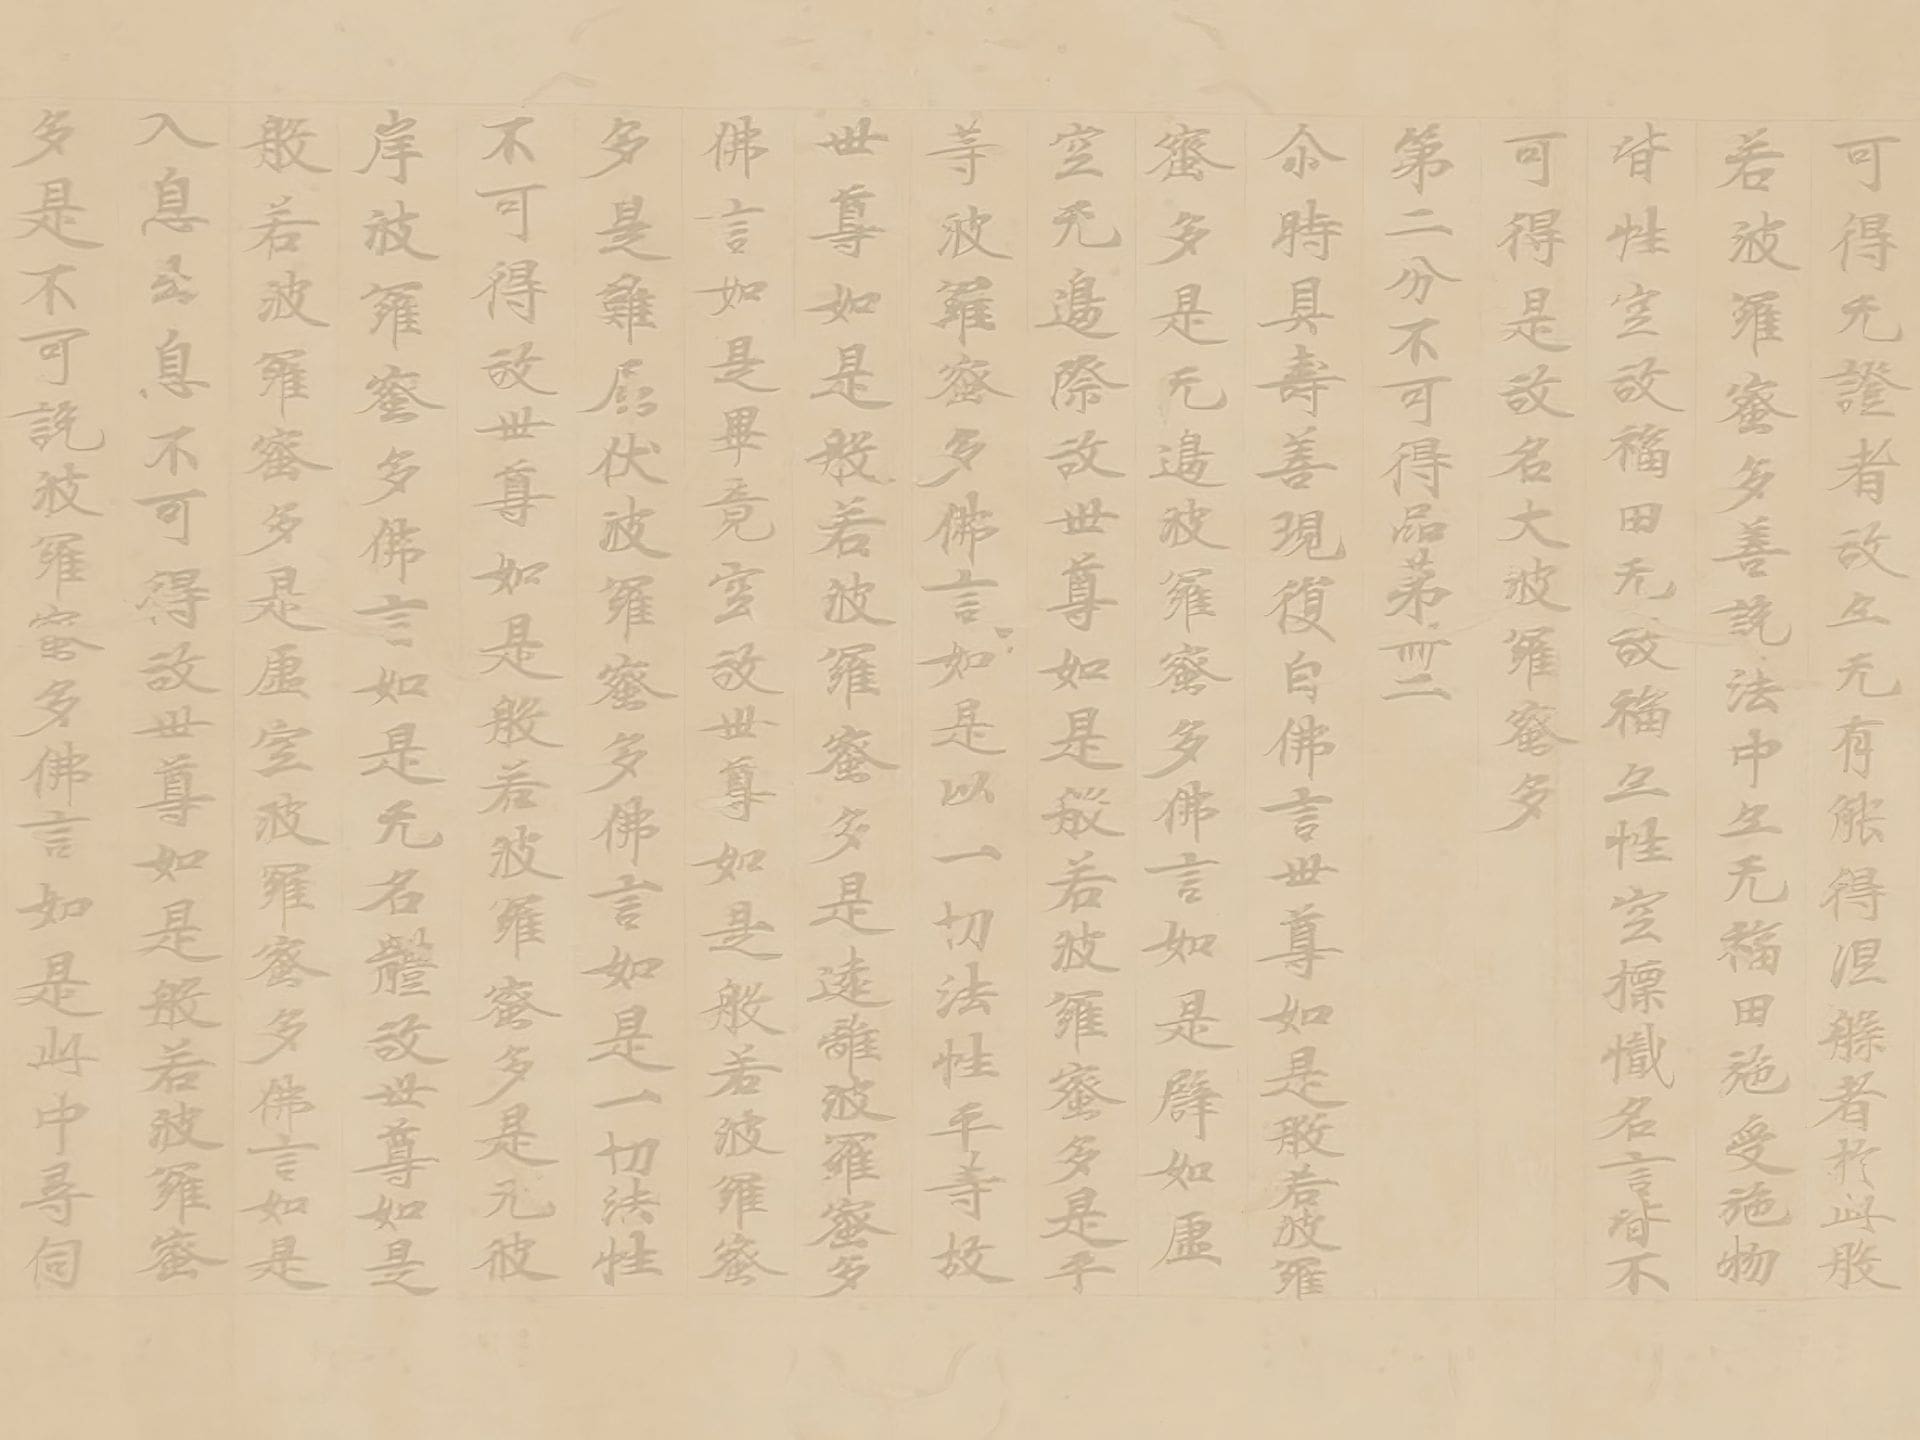 可得无證者故亦无有能得涅槃者於此般
若波羅蜜多善說法中亦无福田施受施物
皆性空故福田无故福亦性空摽幟名言皆不
可得是故名大波羅蜜多
第二分不可得品第卌二
尒時具壽善現復白佛言世尊如是般若波羅
蜜多是无邊波羅蜜多佛言如是譬如虛
空无邊際故世尊如是般若波羅蜜多是平
等波羅蜜多佛言如是以一切法性平等故
世尊如是般若波羅蜜多是遠離波羅蜜多
佛言如是畢竟空故世尊如是般若波羅蜜
多是難屈伏波羅蜜多佛言如是一切法性
不可得故世尊如是般若波羅蜜多是无彼
岸波羅蜜多佛言如是无名體故世尊如是
般若波羅蜜多是虛空波羅蜜多佛言如是
入息出息不可得故世尊如是般若波羅蜜
多是不可說波羅蜜多佛言如是此中尋伺